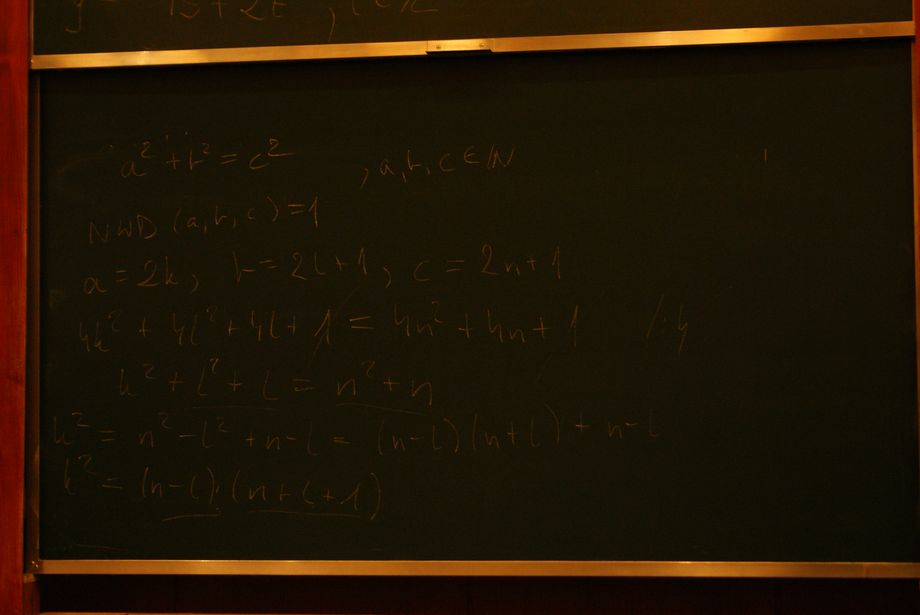 15 + 2t
a² + b² = c² , a, b, c ∈ ℕ
NWD (a, b, c) = 1
a = 2k, b = 2l + 1, c = 2n + 1
4k² + 4l² + 4l + 1 = 4n² + 4n + 1 /:4
k² + l² + l = n² + n
k² = n² - l² + n - l = (n - l)(n + l) + n - l
k² = (n - l)·(n + l + 1)